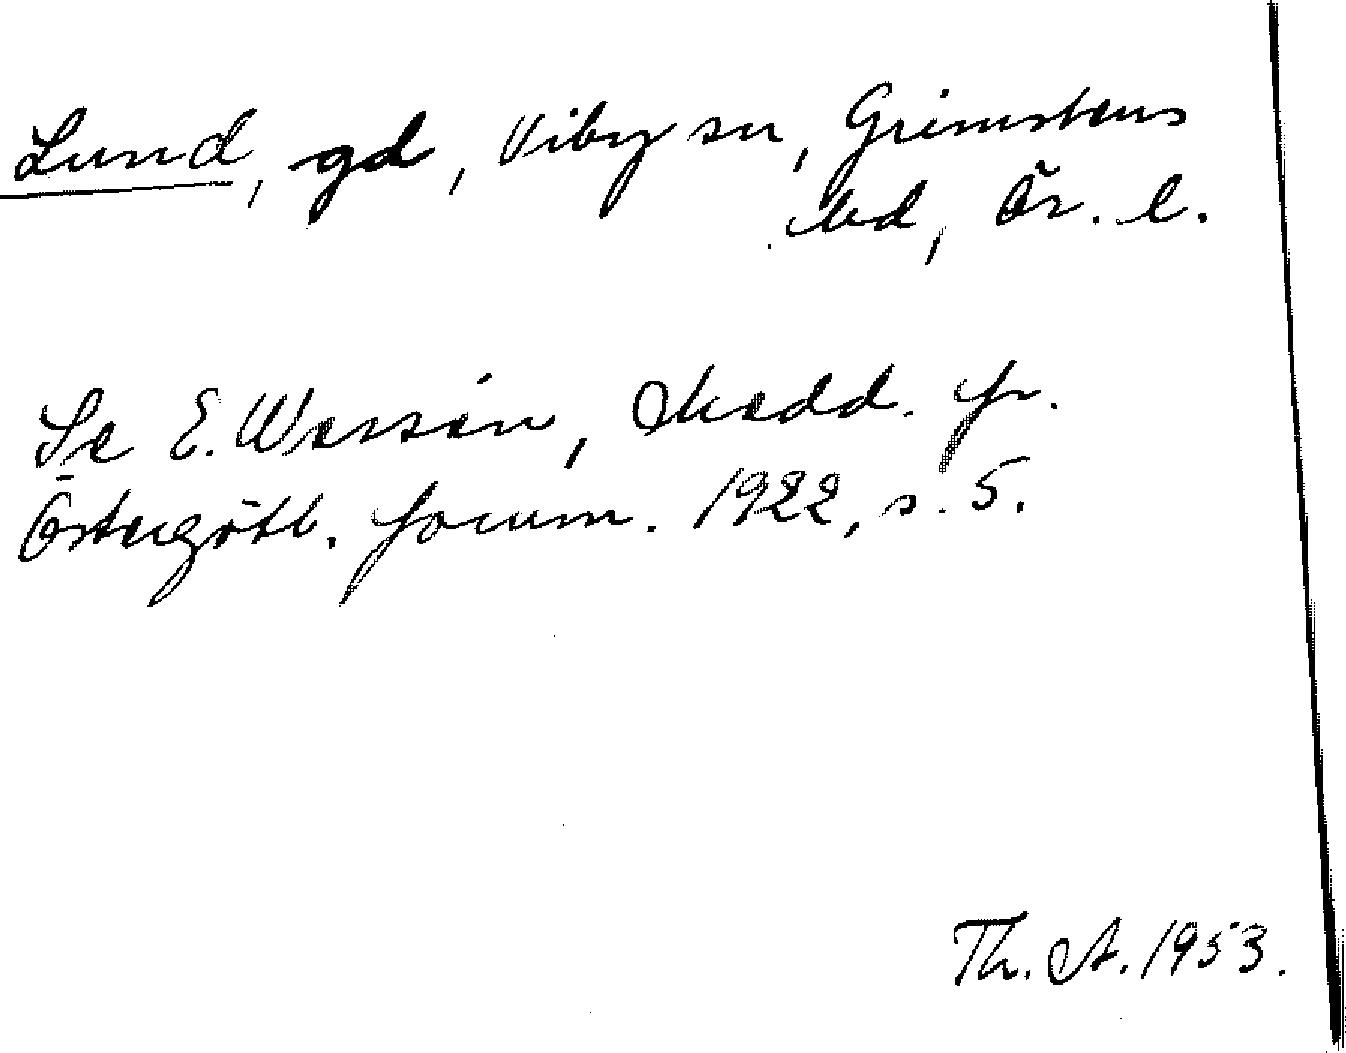 Lund, gd, Viby sn, Grimstens
hd, Ör. l.
Se E. Wessén, Medd. fr.
Östergötl. fornm. 1922, s. 5.
Th. A. 1953.